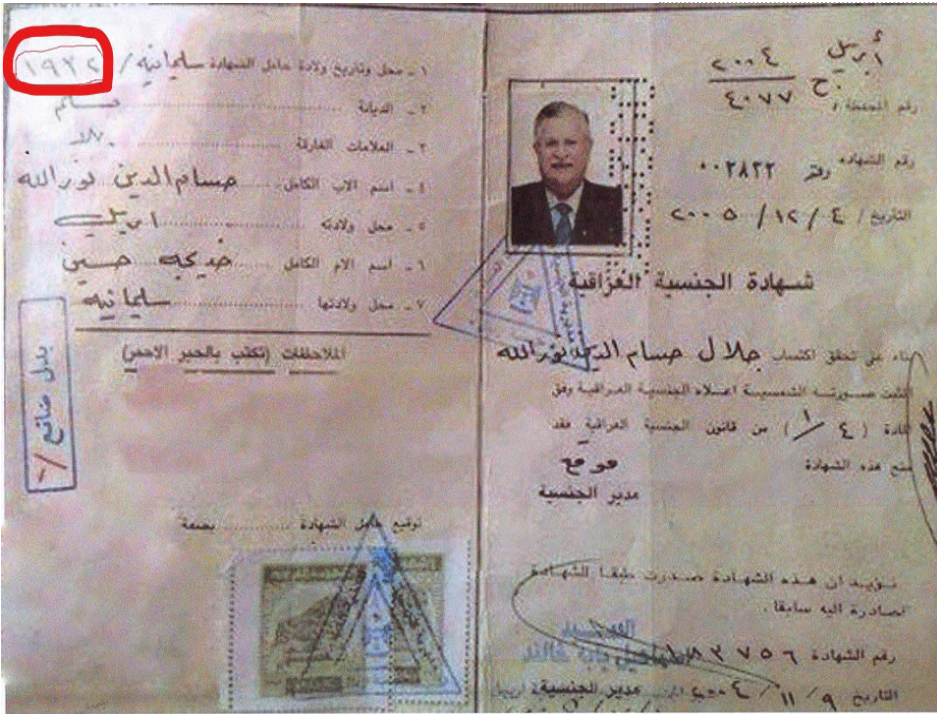 أربيل
٢٠٠٤
رقم المحفظة / ح ٤٠٧٧
رقم الشهادة ٠٠٢٨٢٢
التاريخ / ٤ / ١٢ / ٢٠٠٥
شهادة الجنسية العراقية
بناء على تحقق اكتساب جلال حسام الدين نورالله
المثبت صورته الشمسية اعلاه الجنسية العراقية وفق
المادة ( ٤ / ١ ) من قانون الجنسية العراقية فقد
منح هذه الشهادة
موقع
مدير الجنسية
نؤيد ان هذه الشهادة صدرت طبقا للشهادة
الصادرة اليه سابقا .
رقم الشهادة ١٨٣٧٥٦
التاريخ ٩ / ١١ / ٢٠٠٤
مدير الجنسية
١ ـ محل وتاريخ ولادة حامل الشهادة سليمانيه / ١٩٣٢
٢ ـ الديانة مسلم
٣ ـ العلامات الفارقة
٤ ـ اسم الاب الكامل حسام الدين نورالله
٥ ـ محل ولادته اربيل
٦ ـ اسم الام الكامل خديجه حسين
٧ ـ محل ولادتها سليمانيه
الملاحظات (تكتب بالحبر الاحمر)
بدل ضائع /
توقيع حامل الشهادة .......... بصمة